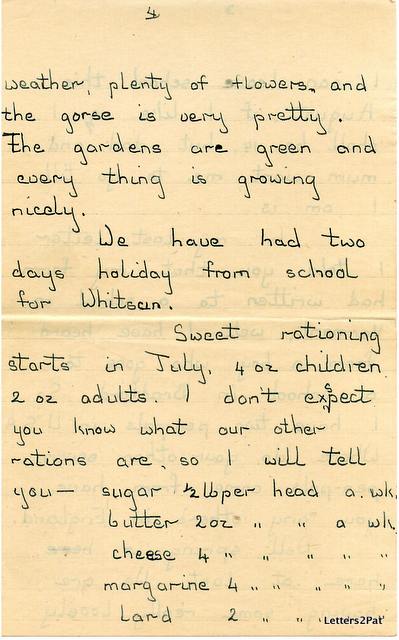 4
weather, plenty of flowers, and
the gorse is very pretty.
The gardens are green and
every thing is growing
nicely.
We have had two
days holiday from school
for Whitsun.
Sweet rationing
starts in July, 4 oz children
2 oz adults I don't expect
you know what our other
rations are, so I will tell
you— sugar ½ lb per head a. wk.
butter 2 oz " " a wk.
cheese 4 " " " " "
margarine 4 " " " " "
Lard 2 " " "
Letters2Pat